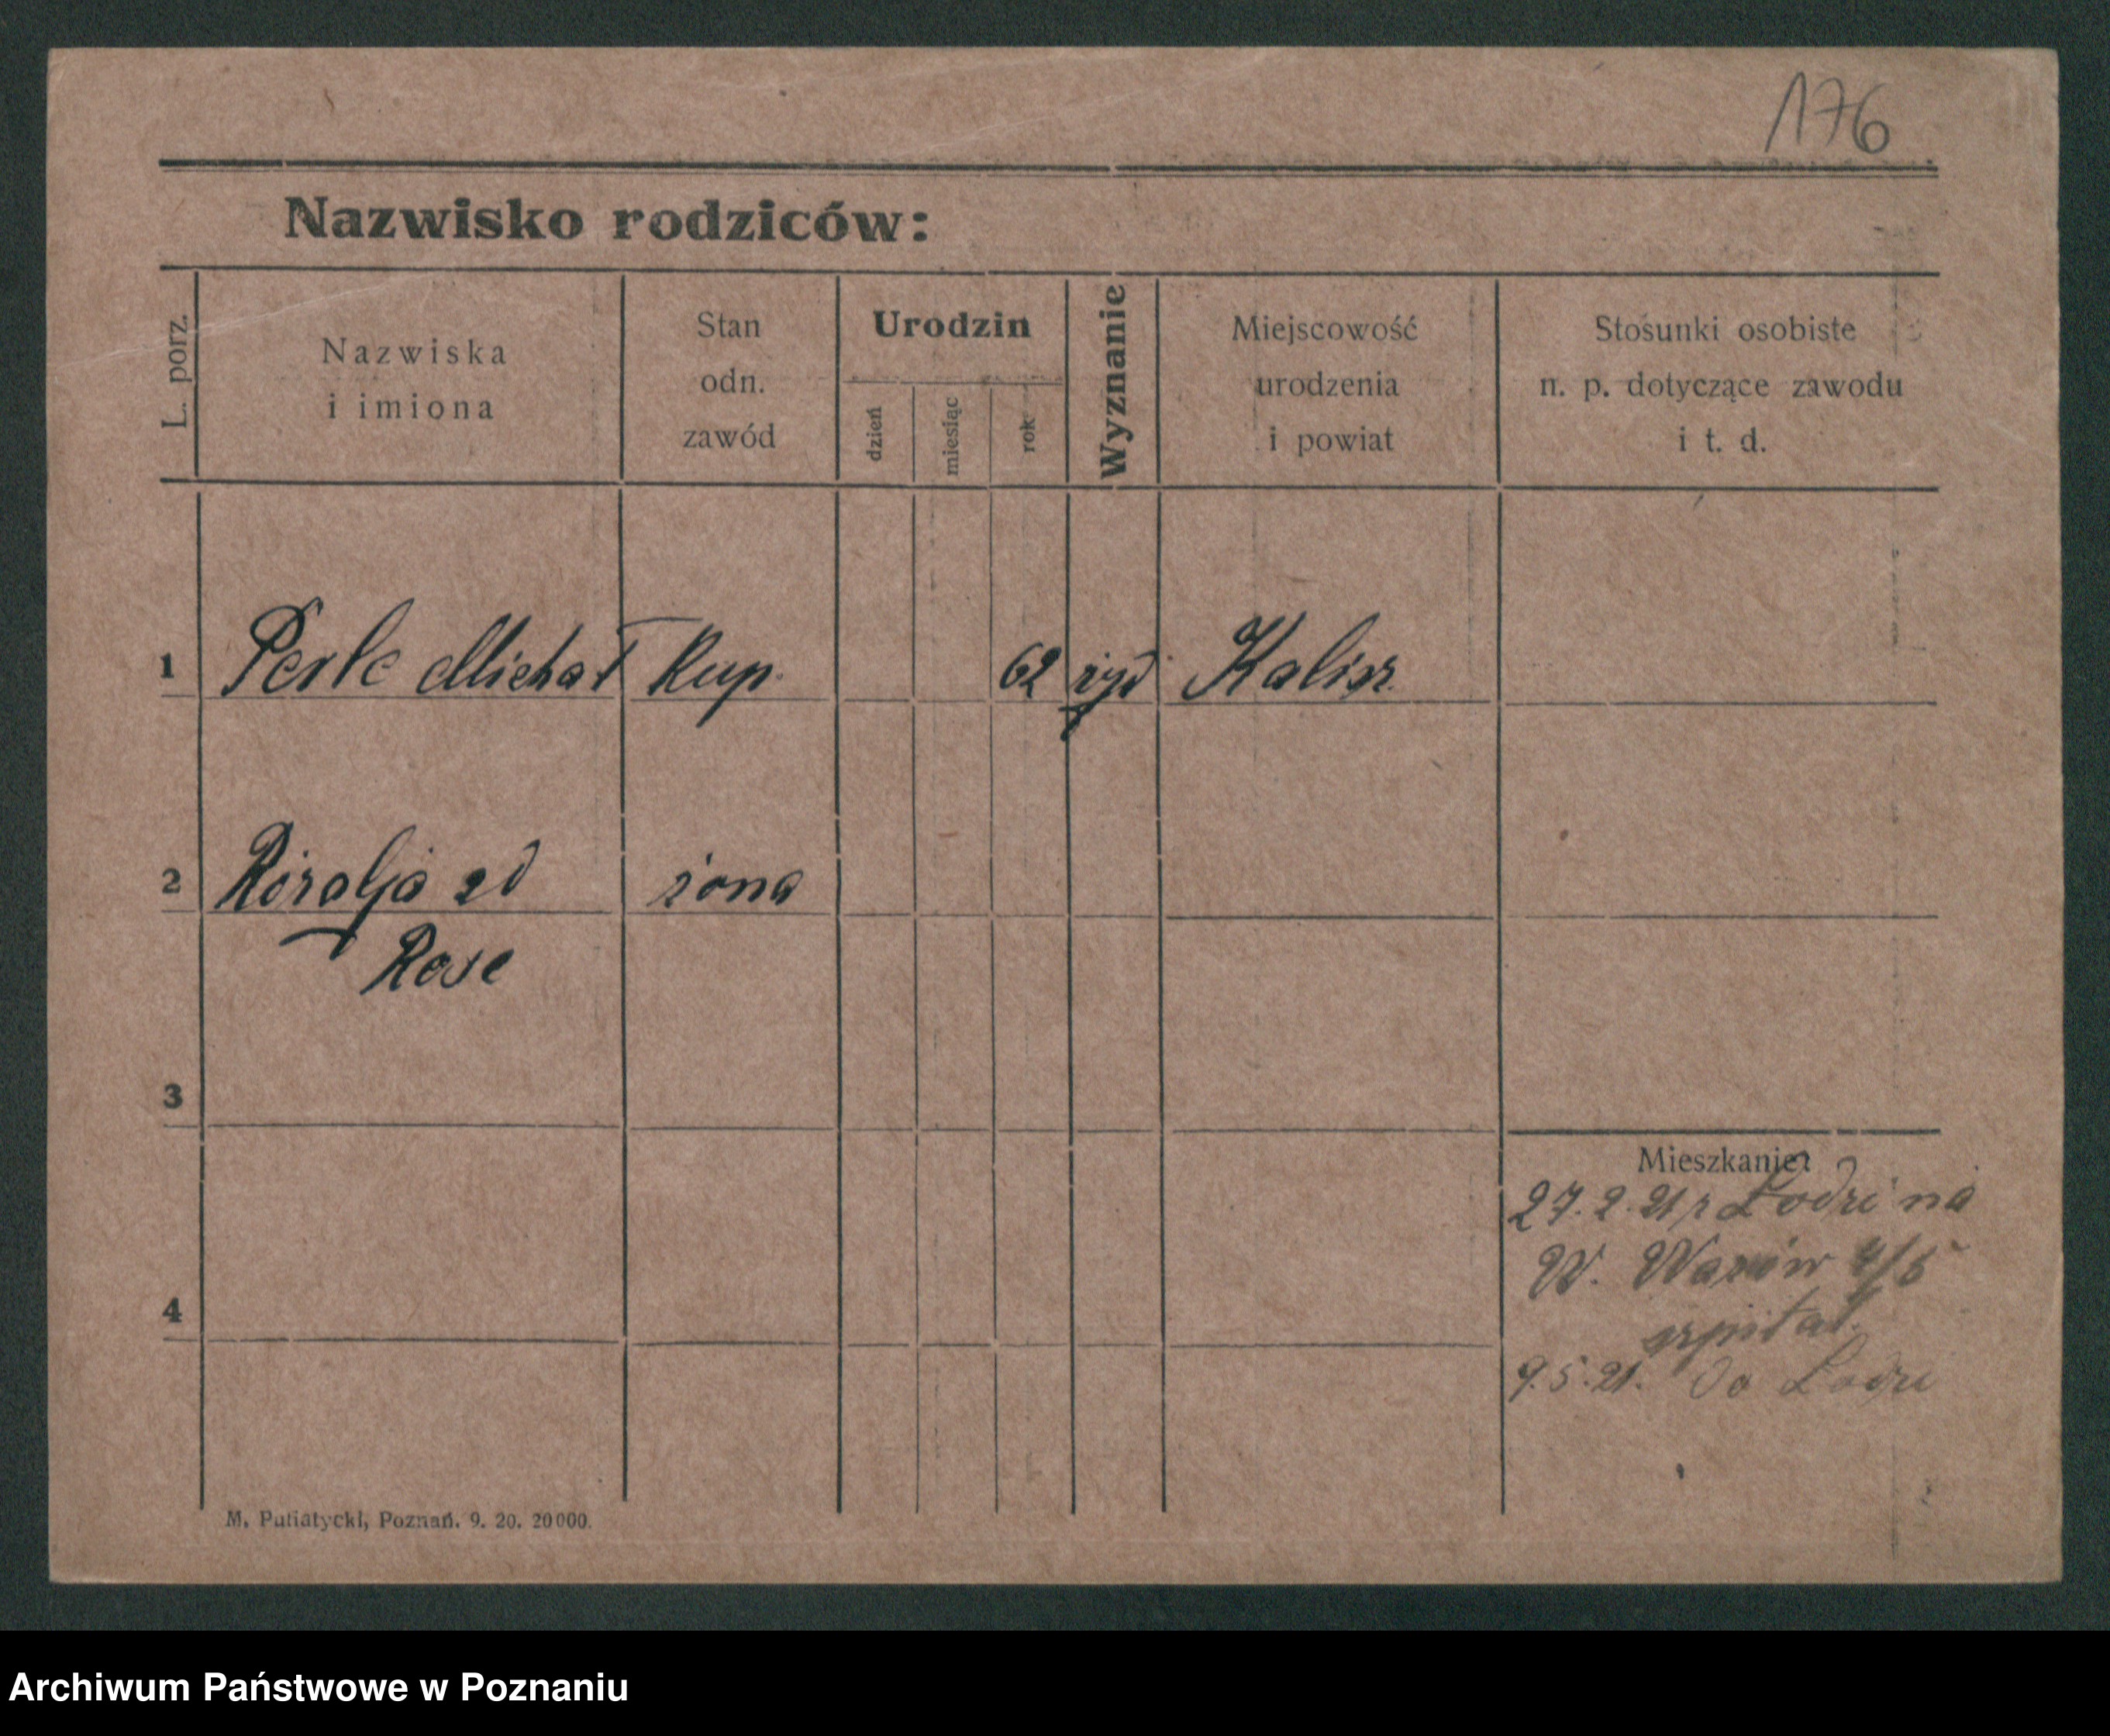 176
Nazwisko rodziców:
L. porz.
Nazwiska
i imiona
Stan
odn.
zawód
Urodzin
dzień
miesiąc
rok
Wyznanie
Miejscowość
urodzenia
i powiat
Stosunki osobiste
n. p. dotyczące zawodu
i t. d.
1 Perle Michał kup. 62 żyd Kalisz
2 Rózalja zd żona
Rose
3
Mieszkanie:
27.2.21 z Łodzi na
W. 
szpital.
4
9.5.21. do Łodzi
M. Putiatycki, Poznań. 9. 20. 20000.
Archiwum Państwowe w Poznaniu